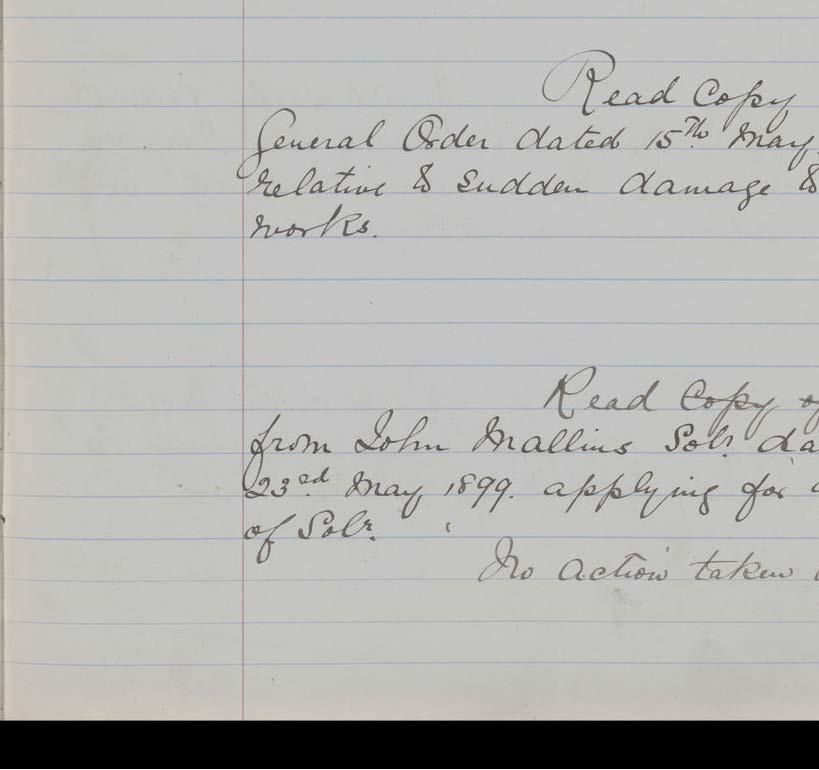 Read Copy
General Order dated 15th May
relative to sudden damage to
works.
Read Copy of
from John Mallins Solr. da
23rd. May 1899. applying for
of Solr.
No action taken